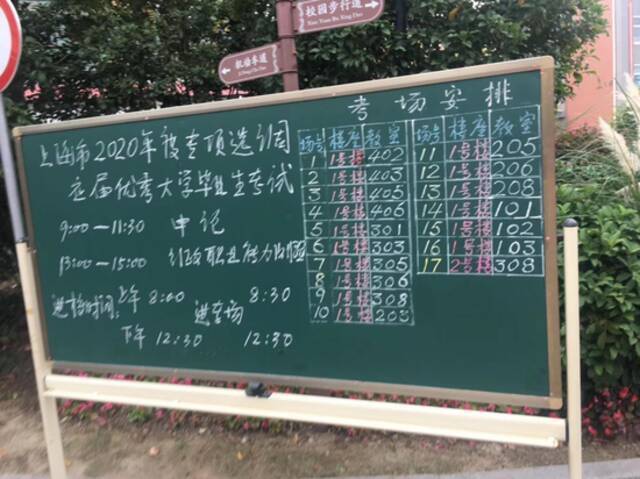 校园步行道
Xiao Yuan Bu Xing Dao
机动车道
考场安排
上海市2020年度专项选调
应届优秀大学毕业生考试
9:00—11:30 申论
13:00—15:00 行政职业能力测验
进校时间:上午 8:00 进考场 8:30
下午 12:30 12:30
场号 楼座 教室
1 1号楼 402
2 1号楼 403
3 1号楼 405
4 1号楼 406
5 1号楼 301
6 1号楼 303
7 1号楼 305
8 1号楼 306
9 1号楼 308
10 1号楼 203
场号 楼座 教室
11 1号楼 205
12 1号楼 206
13 1号楼 208
14 1号楼 101
15 1号楼 102
16 1号楼 103
17 2号楼 308